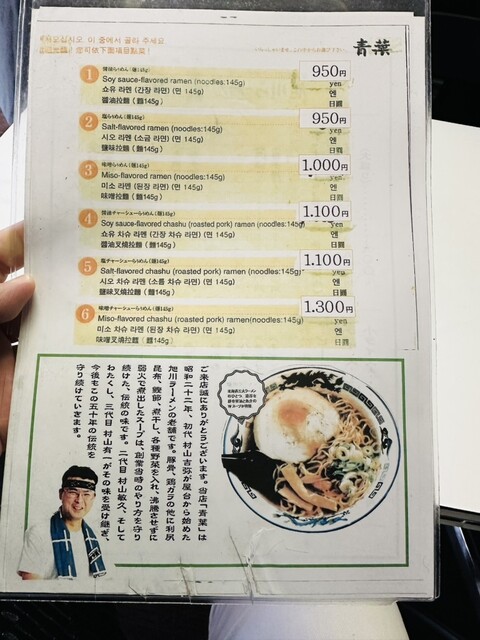 이 중에서 골라 주세요
您可依下面項目點菜！
青葉
1
醤油らぅめん(麺145g)
Soy sauce-flavored ramen (noodles:145g)
쇼유 라멘 (간장 라면) (면 145g)
醬油拉麵（麵145g）
950円
yen
엔
日圓
2
塩らぅめん(麺145g)
Salt-flavored ramen (noodles:145g)
시오 라멘 (소금 라면) (면 145g)
鹽味拉麵（麵145g）
950円
yen
엔
日圓
3
味噌らぅめん(麺145g)
Miso-flavored ramen (noodles:145g)
미소 라멘 (된장 라면) (면 145g)
味噌拉麵（麵145g）
1.000円
yen
엔
日圓
4
醤油チャーシューらぅめん(麺145g)
Soy sauce-flavored chashu (roasted pork) ramen (noodles:145g)
쇼유 차슈 라멘 (간장 차슈 라면) (면 145g)
醬油叉燒拉麵（麵145g）
1.100円
yen
엔
日圓
5
塩チャーシューらぅめん(麺145g)
Salt-flavored chashu (roasted pork) ramen (noodles:145g)
시오 차슈 라멘 (소름 차슈 라면) (면 145g)
鹽味叉燒拉麵（麵145g）
1.100円
yen
엔
日圓
6
味噌チャーシューらぅめん(麺145g)
Miso-flavored chashu (roasted pork) ramen(noodles:145g)
미소 차슈 라멘 (된장 차슈 라면) (면 145g)
味噌叉燒拉麵（麵145g）
1.300円
yen
엔
日圓
ご来店誠にありがとうございます。当店「青葉」は
昭和二十二年、初代 村山吉弥が屋台から始めた
旭川ラーメンの老舗です。豚骨、鶏ガラの他に利尻
昆布、鰹節、煮干し、各種野菜を入れ、沸騰させずに
弱火で煮出したスープは、創業当時のやり方を守り
続けた、伝統の味です。二代目 村山敏久、そして
わたくし、三代目 村山有一がその味を受け継ぎ、
今後もこの五十年の伝統を
守り続けていきます。